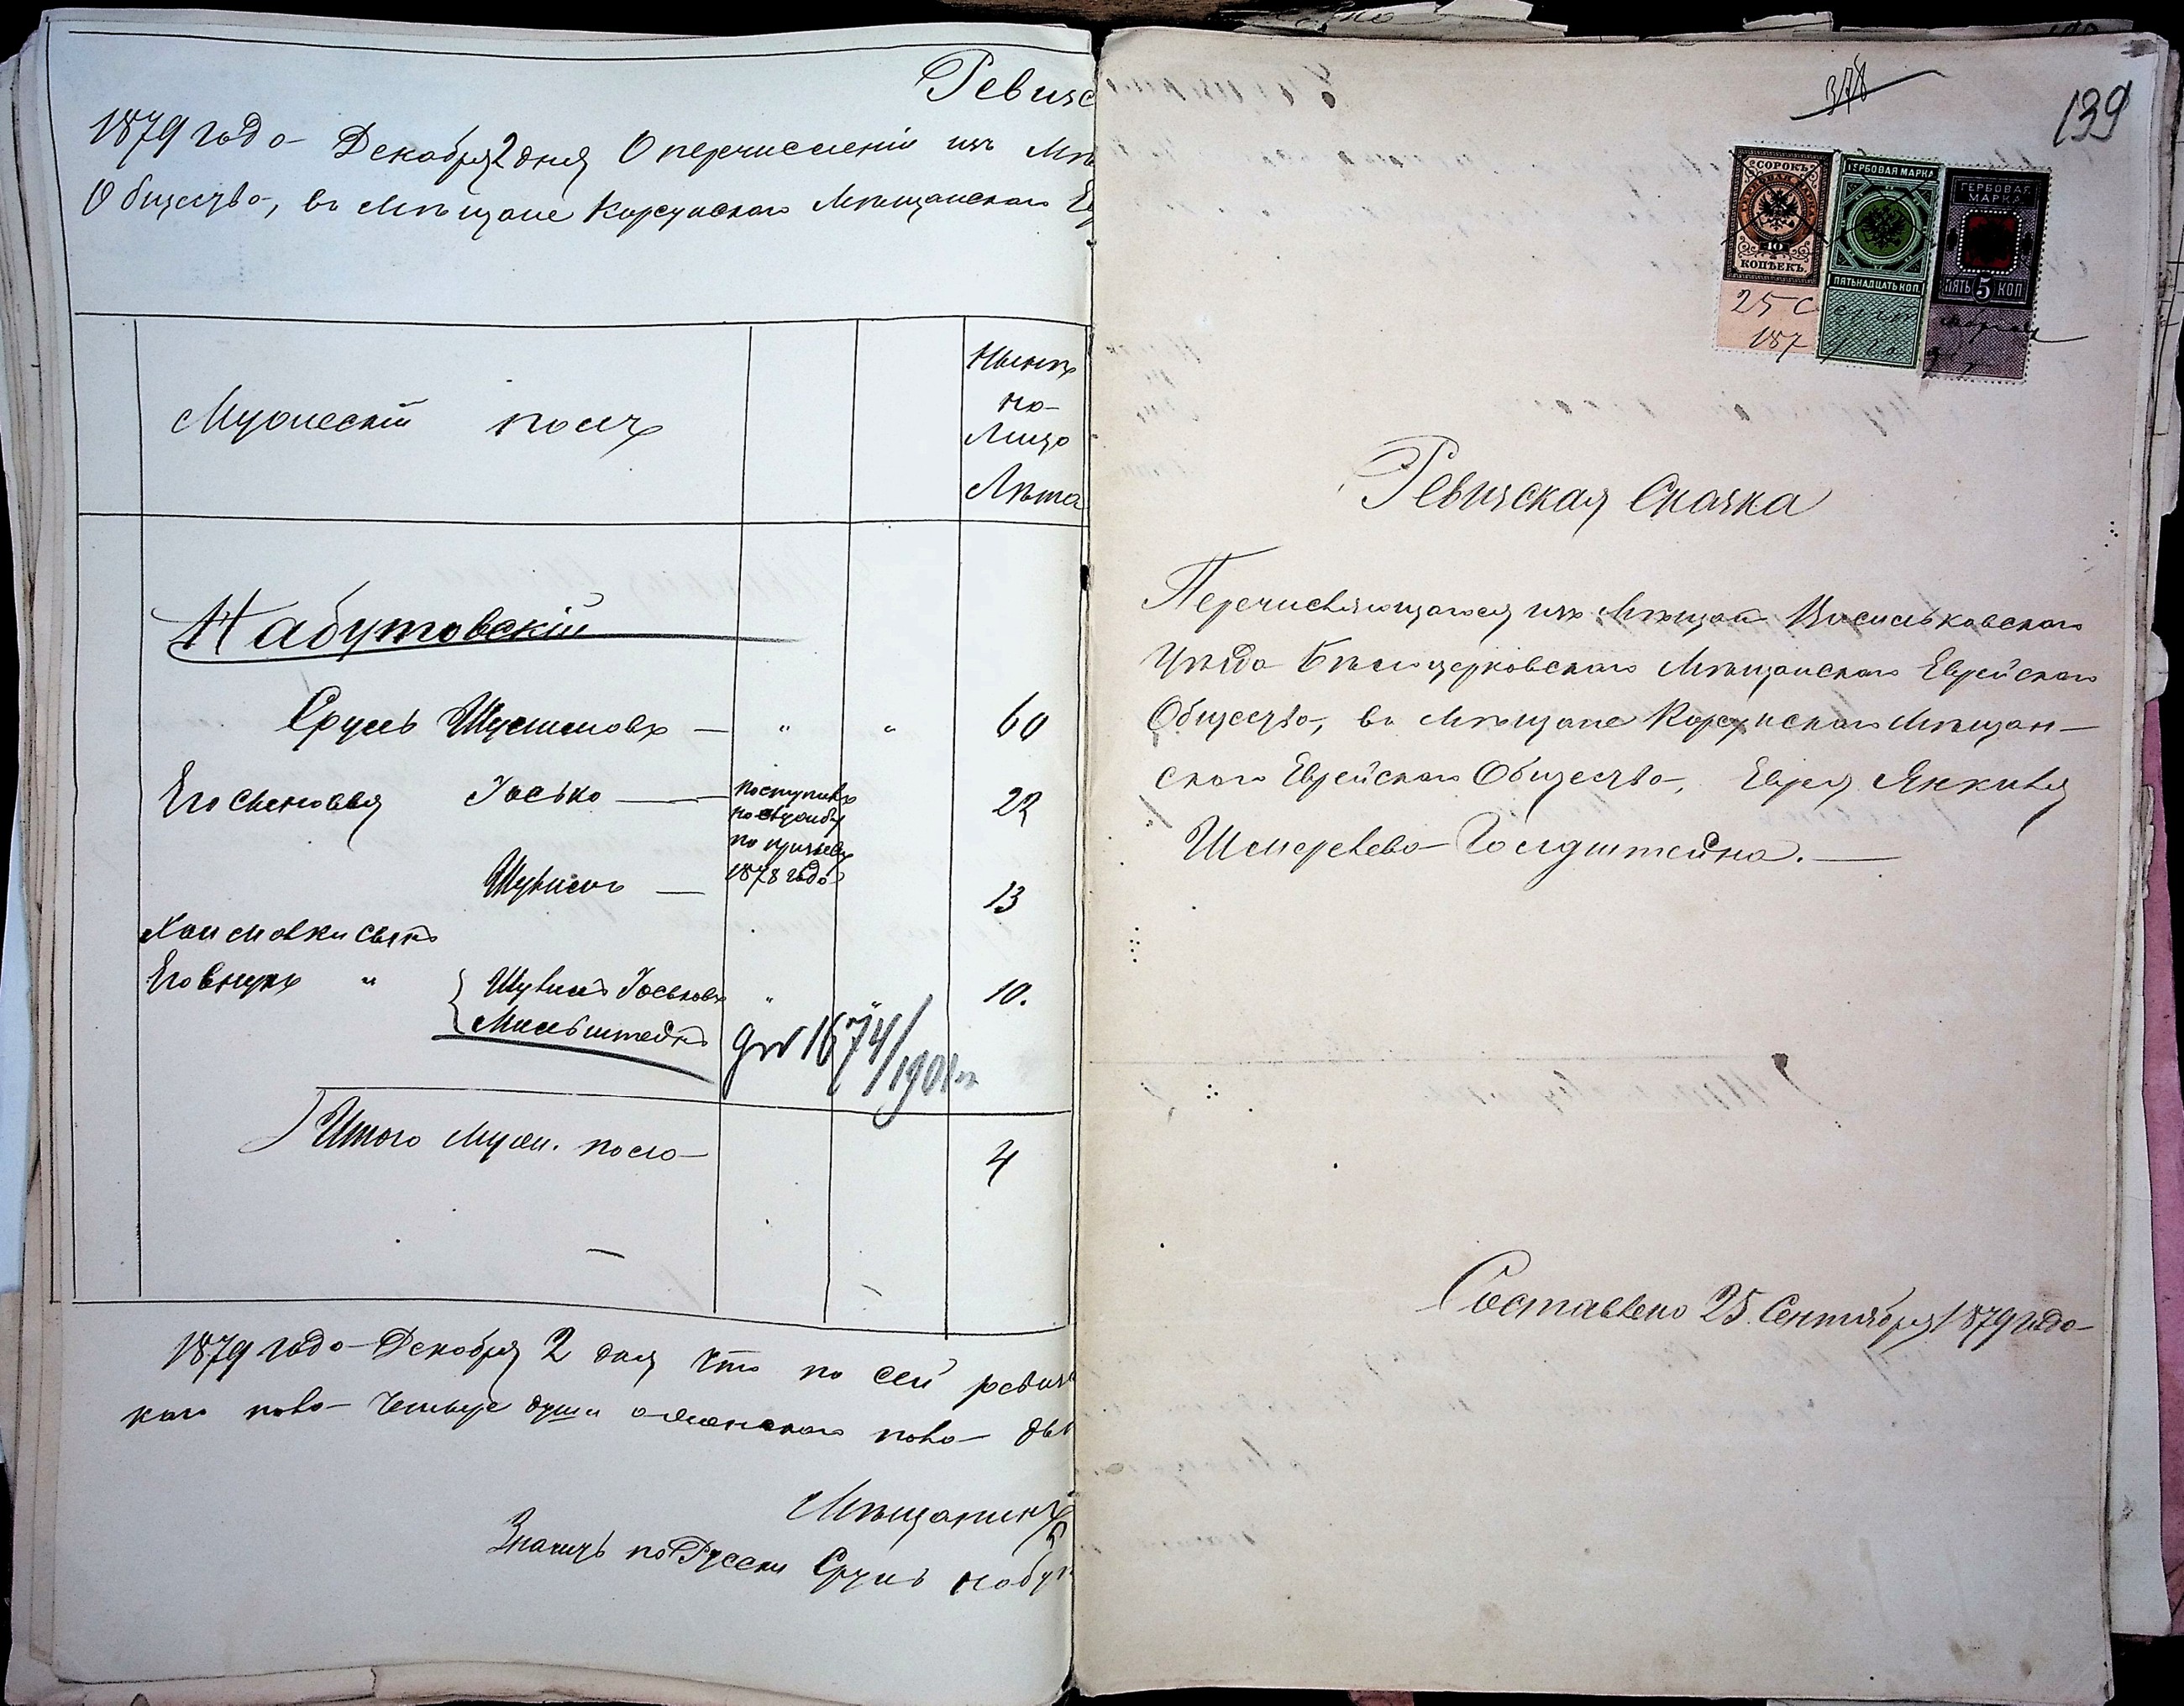 Ревизс
1879 года Декабря 2 дня О перечислении изъ Мѣ
Общества, въ Мѣщане Корсунскаго Мѣщанскаго Ев
Мужескій полъ
Нынѣ
на
Лицо
Лѣта
Набутовскій
Сруль Шулимовъ — " " 60
Его сыновья Iосько — 22
поступилъ
на службу
по призыву
1878 года
Шулимъ — 13
Его внукъ " Шулимъ Iоськовъ " " 10.
Мильштейнъ
1674/1901
Итого Муж. пола 4
1879 года Декабря 2 дня Что по сей ревизс
каго пола четыре души а женскаго пола двѣ
Мѣщанинъ
Значитъ по Русски Сруль Набут
378
139
СОРОКЪ
40
КОПѢЕКЪ.
ГЕРБОВАЯ МАРКА
ПЯТЬНАДЦАТЬ КОП.
ГЕРБОВАЯ
МАРКА
ПЯТЬ 5 КОП
25 Сентября
187 9 года
Ревизская Сказка
Перечисляющагося изъ Мѣщан Васильковскаго
Уѣзда Бѣлоцерковскаго Мѣщанскаго Еврейскаго
Общества, въ Мѣщане Корсунскаго Мѣщан-
скаго Еврейскаго Общества, Еврея Янкеля
Шмерелева Голдштейна. —
Составлено 25 Сентября 1879 года